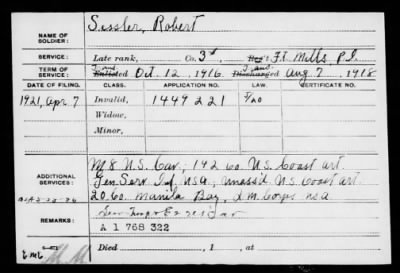 Sissler, Robert
NAME OF
SOLDIER:
SERVICE: Late rank, Co. 3d Reg't Ft. Mills, P.I.
TERM OF
SERVICE: Enlisted Oct. 12, 1916 Discharged Aug 7, 1918
DATE OF FILING. CLASS. APPLICATION NO. LAW. CERTIFICATE NO.
1921, Apr 7 Invalid, 1449221
Widow,
Minor,
ADDITIONAL
SERVICES:
M 8 U.S. Cav, 142 Co. U.S. Coast Art
Gen Serv Inf USA, Unass'd U.S. Coast Art
20 Co. Manila Bay, Q M Corps USA
REMARKS:
A 1 768 322
Died , 1 , at